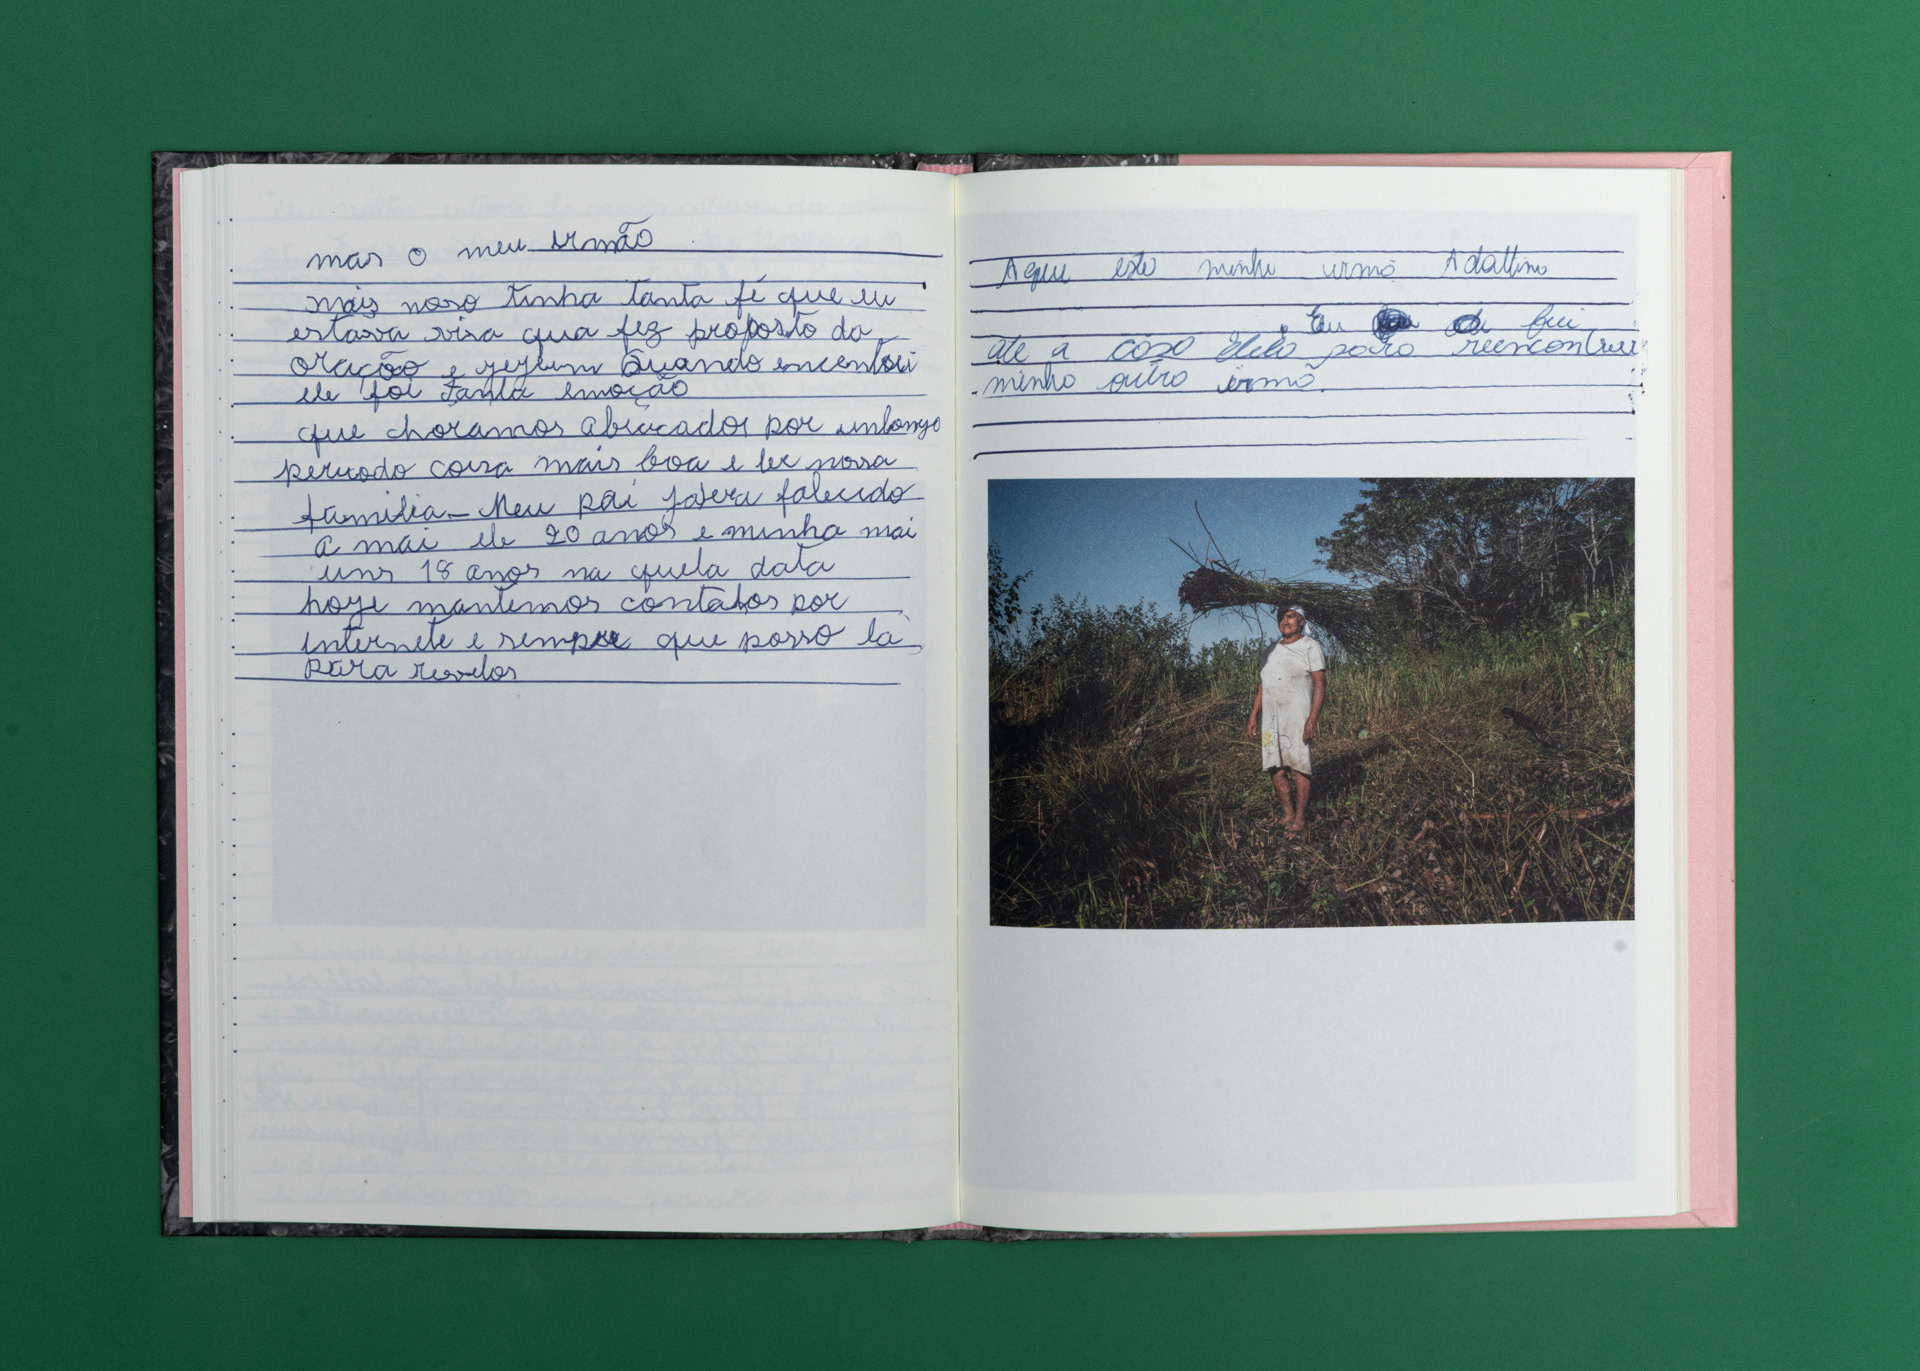 mas o meu irmão
mais novo tinha tanta fé que eu
estava viva qua fez proposto da
oração e jejum Quando encontrei
ele foi tanta emoção
que choramos abracados por um longo
periodo coisa mais boa e ter nossa
familia - Meu pai ja era falecido
a mai de 20 anos e minha mai
uns 18 anos na quela data
hoje mantemos contatos por
internete e sempre que posso la
para revelos
Aqui esta minha irmã Adaltina
Eu fui
ate a casa dela para reencontrar
minha outra irmã.